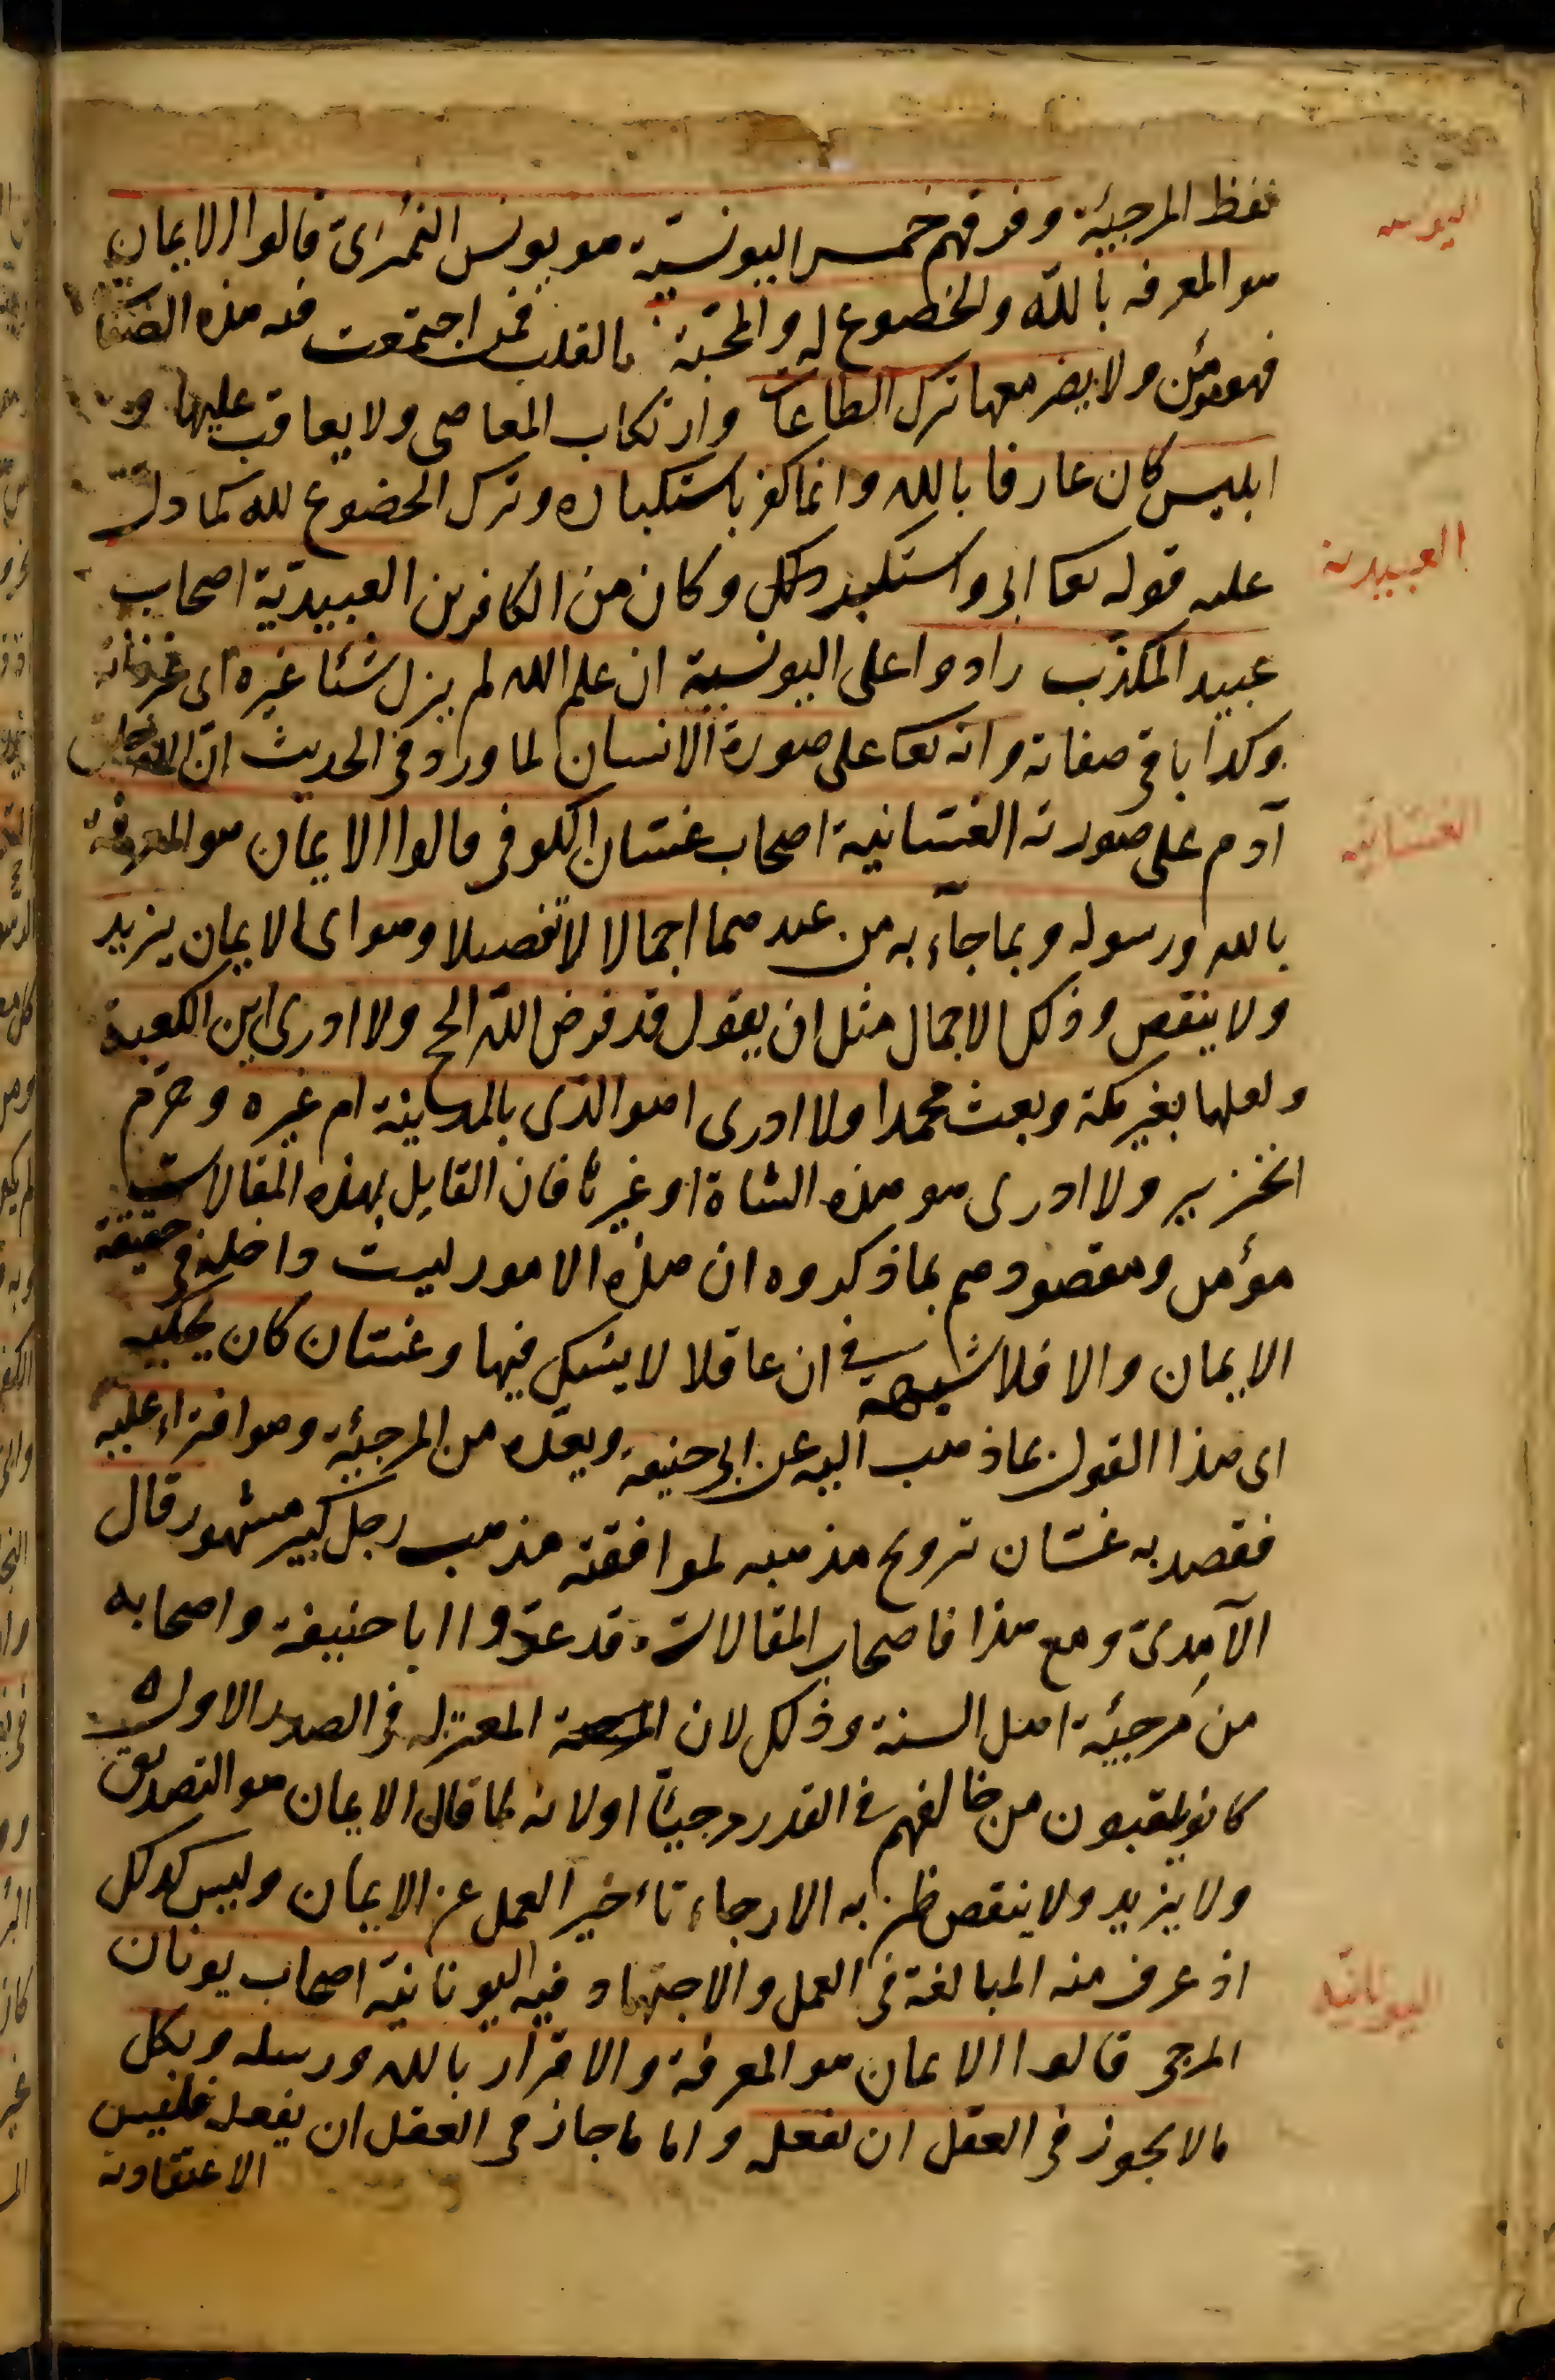 اليونسية
لفظ المرجئة وفرقهم خمس اليونسية هو يونس النمرى قالوا الايمان
هو المعرفه بالله والخضوع له والمحبة بالقلب فمن اجتمعت فيه هذه الصفا
فهو مؤمن ولا يضر معها ترك الطاعات وارتكاب المعاصى ولا يعاقب عليها و
ابليس كان عارفا بالله وانما كفر باستكباره وترك الخضوع لله كما دل
العبيدية
عليه قوله تعا ابى واستكبر وكان من الكافرين العبيدية اصحاب
عبيد المكذب زادوا على اليونسية ان علم الله لم يزل شئا غيره اى غير ذاته
وكذا باقى صفاته وانه تعا على صورة الانسان لما ورد فى الحديث ان الله خلق
الغسانية
آدم على صورته الغسانية اصحاب غسان الكوفى قالوا الايمان هو المعرفة
بالله ورسوله وبما جآء به من عندهما اجمالا لا تفصيلا وهو اى الايمان يزيد
ولا ينقص وذلك الاجمال مثل ان يقول قد فرض الله الحج ولا ادرى اين الكعبة
ولعلها بغير مكة وبعث محمدا ولا ادرى اهو الذى بالمدينة ام غيره وحرم
الخنزير ولا ادرى هو هذه الشاة او غيرها فان القايل بهذه المقالات
مؤمن ومقصودهم بما ذكروه ان هذه الامور ليست داخلة فى حقيقة
الايمان والا فلا شبهة فى ان عاقلا لا يشك فيها وغسان كان يحكيه
اى هذا القول بما ذهب اليه عن ابى حنيفة ويعده من المرجئة وهو افتراء عليه
فقصد به غسان ترويج مذهبه لموافقته مذهب رجل كبير مشهور قال
الآمدى ومع هذا فاصحاب المقالات قد عدوا ابا حنيفة واصحابه
من مرجئة اهل السنة وذلك لان المعتزله فى الصدر الاول
كانو يلقبون من خالفهم فى القدر مرجيئا او لانه لما قال الايمان هو التصديق
ولا يزيد ولا ينقص ظن به الارجاء تأخير العمل عن الايمان وليس كذلك
اليونانية
اذ عرف منه المبالغة فى العمل والاجتهاد فيه اليونانية اصحاب يونان
المرجى قالوا الايمان هو المعرفة والاقرار بالله ورسله وبكل
مالا يجوز فى العقل ان يفعله واما ما جاز فى العقل ان يفعله فليس
الاعتقاد به